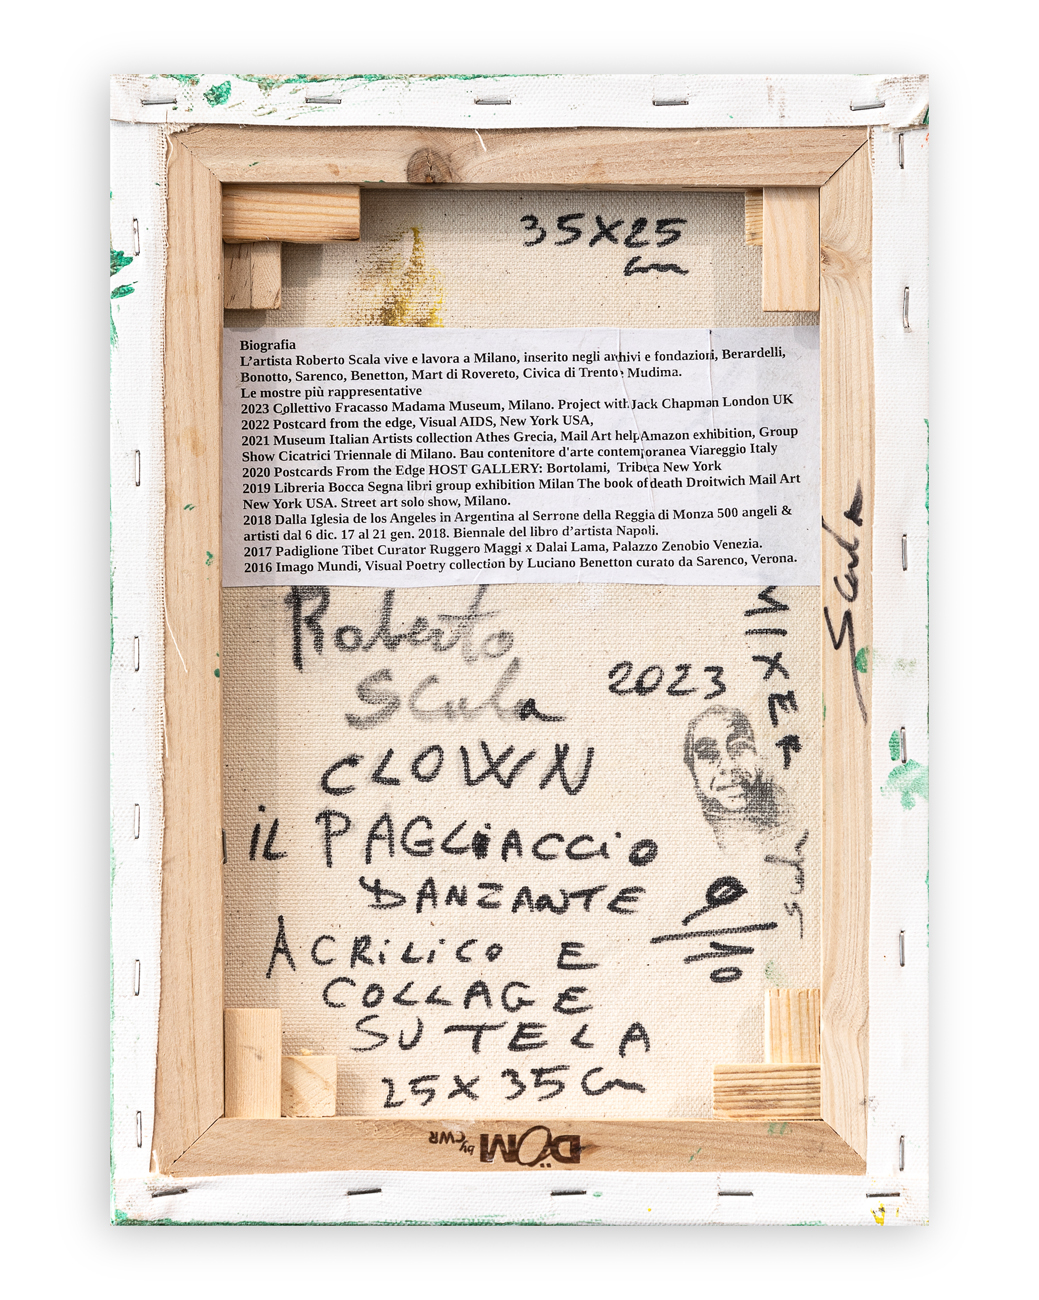 35X25
cm
Biografia
L'artista Roberto Scala vive e lavora a Milano, inserito negli archivi e fondazioni, Berardelli,
Bonotto, Sarenco, Benetton, Mart di Rovereto, Civica di Trento Mudima.
Le mostre più rappresentative
2023 Collettivo Fracasso Madama Museum, Milano. Project with Jack Chapman London UK
2022 Postcard from the edge, Visual AIDS, New York USA,
2021 Museum Italian Artists collection Athes Grecia, Mail Art help Amazon exhibition, Group
Show Cicatrici Triennale di Milano. Bau contenitore d'arte contemporanea Viareggio Italy
2020 Postcards From the Edge HOST GALLERY: Bortolami, Tribeca New York
2019 Libreria Bocca Segna libri group exhibition Milan The book of death Droitwich Mail Art
New York USA. Street art solo show, Milano.
2018 Dalla Iglesia de los Angeles in Argentina al Serrone della Reggia di Monza 500 angeli &
artisti dal 6 dic. 17 al 21 gen. 2018. Biennale del libro d'artista Napoli.
2017 Padiglione Tibet Curator Ruggero Maggi x Dalai Lama, Palazzo Zenobio Venezia.
2016 Imago Mundi, Visual Poetry collection by Luciano Benetton curato da Sarenco, Verona.
Roberto
Scala
2023
CLOWN
IL PAGLIACCIO
DANZANTE
ACRILICO E
COLLAGE
SU TELA
25X35 cm
Scala
Scala
DÖM by CWR